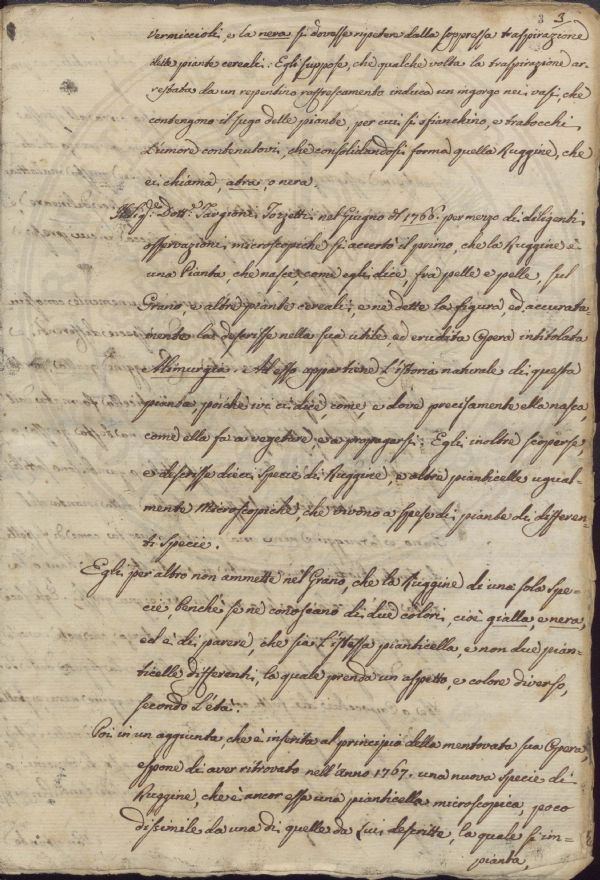 3 3
Vermiccioli, e la nera si dovesse ripetere dalla soppressa traspirazione
delle piante cereali: Egli suppose, che qualche volta la traspirazione ar=
restata da un repentino raffrescamento induca un ingorgo nei vasi, che
contengono il sugo delle piante, per cui si sfianchino, e trabocchi
L'umore contenutovi, che consolidandosi forma quella Ruggine, che
ei chiama, atra, o nera.
Il Sig.e Dott.e Targioni Tozzetti nel Giugno del 1766. per mezzo di diligenti
osservazioni microscopiche si accertò il primo, che la Ruggine è
una Pianta, che nasce, come egli dice, fra pelle e pelle, sul
Grano, e altre piante cereali; e ne dette la figura ed accurata=
mente la descrisse nella sua utile, ed erudita Opera intitolata
Alimurgia. Ad esso appartiene L'istoria naturale di questa
pianta, poichè ivi ci dice come, e dove precisamente ella nasca,
come ella fa a vegetare, e a propagarsi: Egli inoltre scoperse,
e descrisse dieci Specie di Ruggine, e altre pianticelle ugual=
mente Microscopiche, che vivono a spese di piante di differen=
ti specie.
Egli per altro non ammette nel Grano, che la Ruggine di una sola spe=
cie, benchè se ne conoscano di due colori, cioè gialla e nera,
ed è di parere, che sia L'istessa pianticella, e non due pian=
ticelle differenti, la quale prenda un aspetto, e colore diverso,
secondo L'età.
Poi in un aggiunta che è inserita al principio della mentovata sua Opera,
espone di aver ritrovato nell'anno 1767. una nuova specie di
Ruggine, che è ancor essa una pianticella microscopica, poco
dissimile da una di quelle da Lui descritte, la quale si im=
pianta,